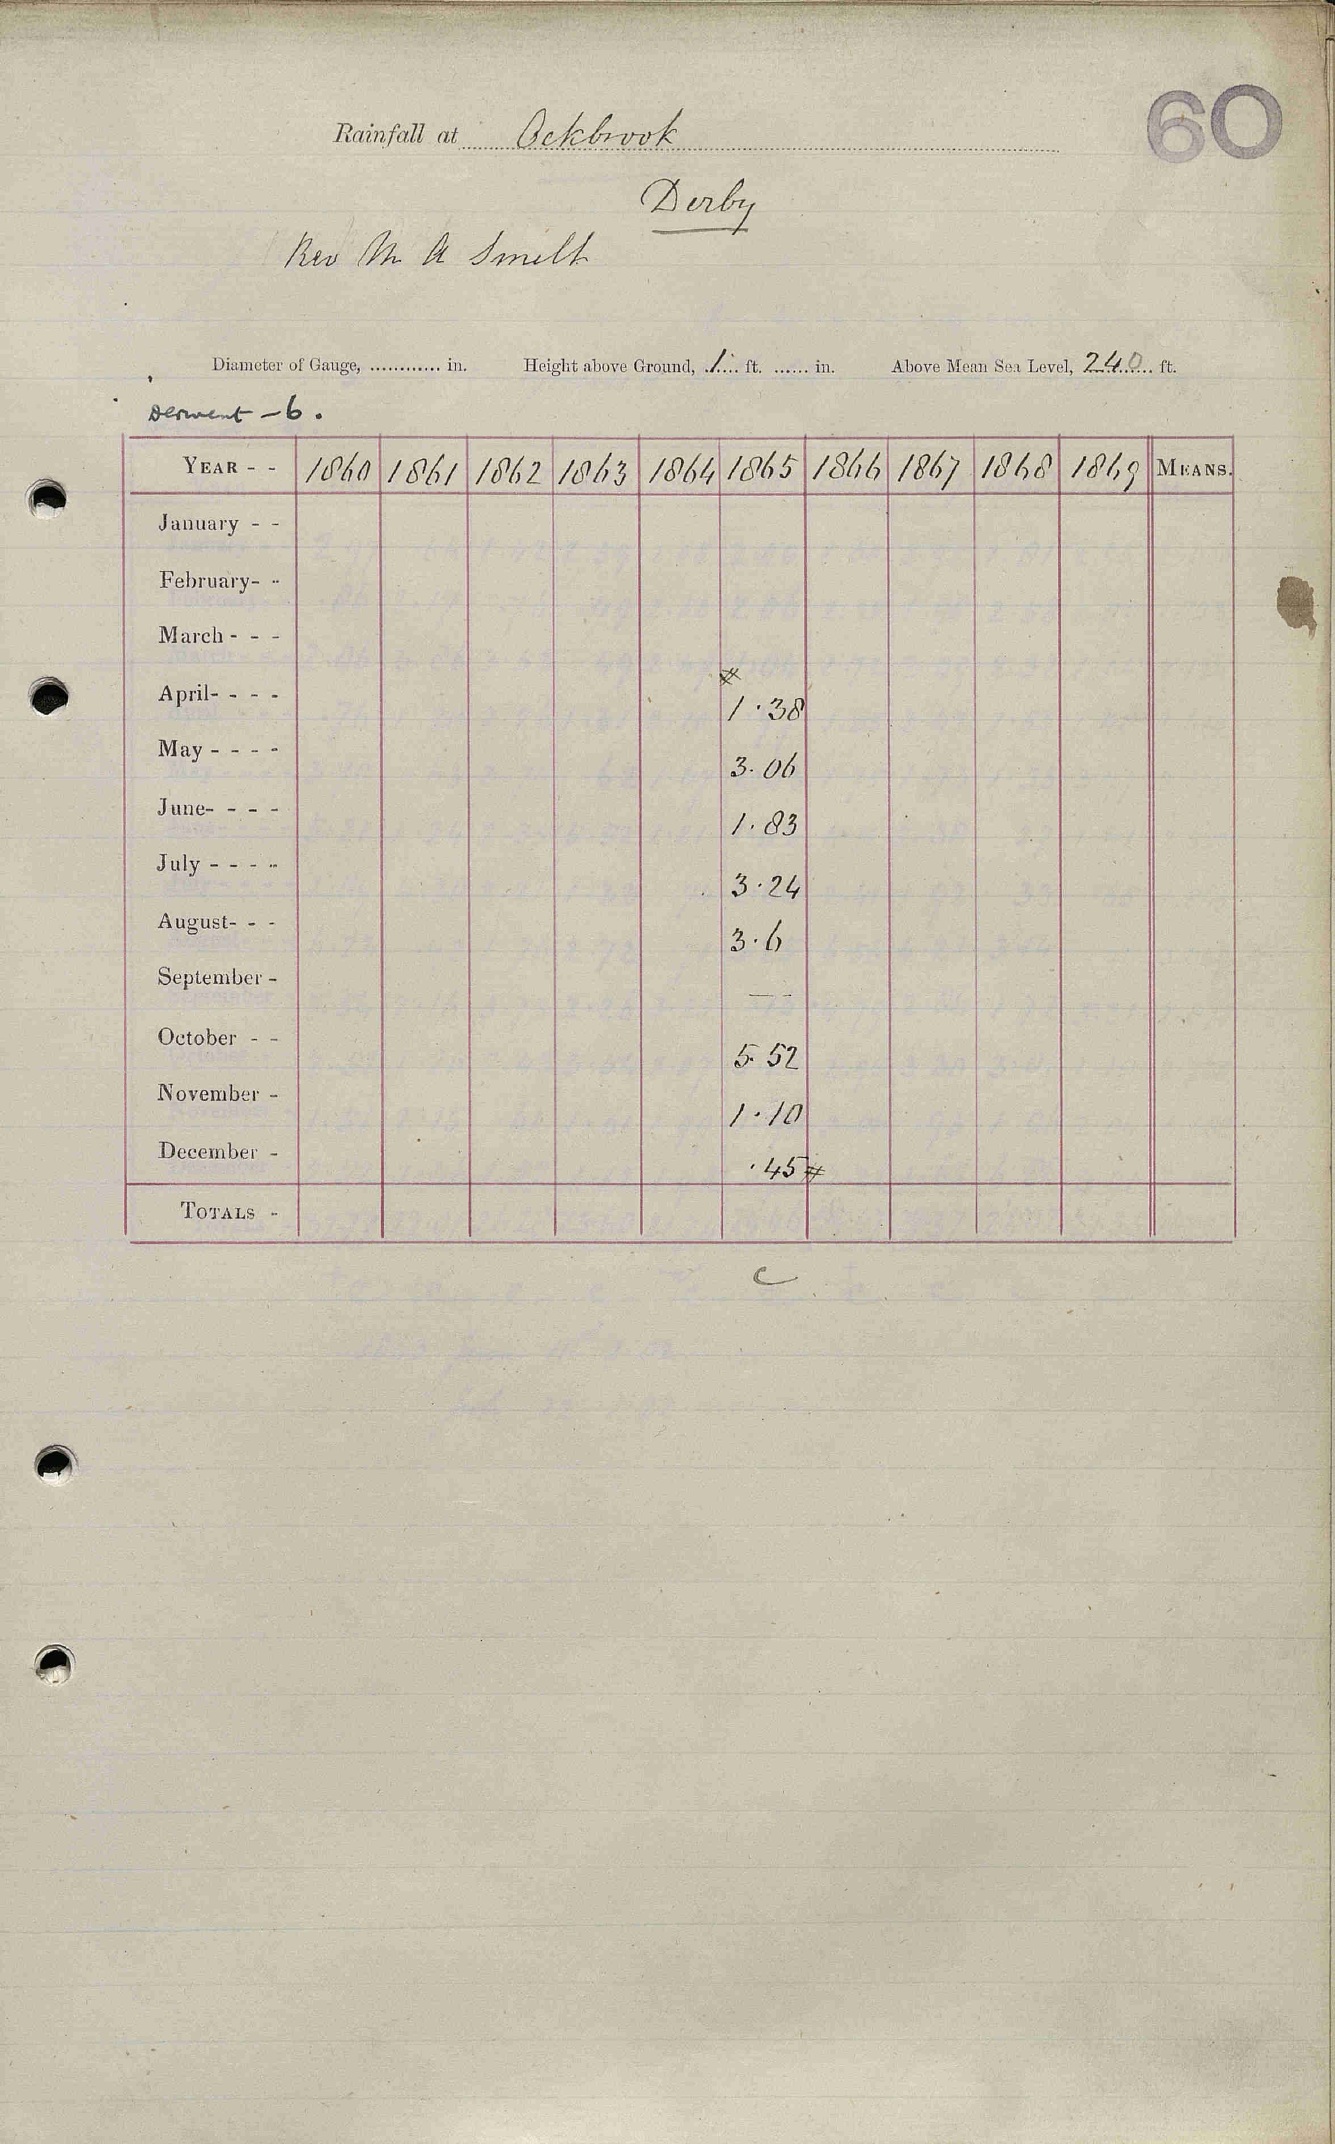 60
Rainfall at Ockbrook
Derby
Rev M A Smelt
Diameter of Gauge, ............ in. Height above Ground, 1 ft. ...... in. Above Mean Sea Level, 240 ft.
Derwent - 6.
YEAR - - 1860 1861 1862 1863 1864 1865 1866 1867 1868 1869 MEANS.
January - -
February- -
March - - -
#
April- - - - 1.38
May - - - - 3.06
June- - - - 1.83
July - - - - 3.24
August- - - 3.6
September - —
October - - 5.52
November - 1.10
December - .45 #
TOTALS -
C